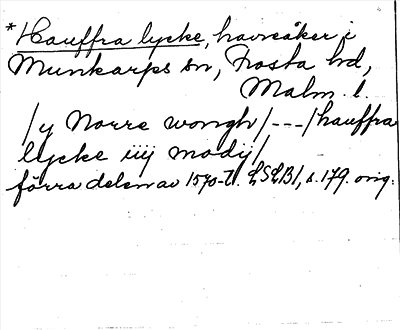 *Hauffra lycke, havreåker i
Munkarps sn, Frosta hd,
Malm. l.
/y Norre wongh/---/hauffra
lycke iiij modij/
förra delen av 1570-t. LSLB1, s. 179. orig.